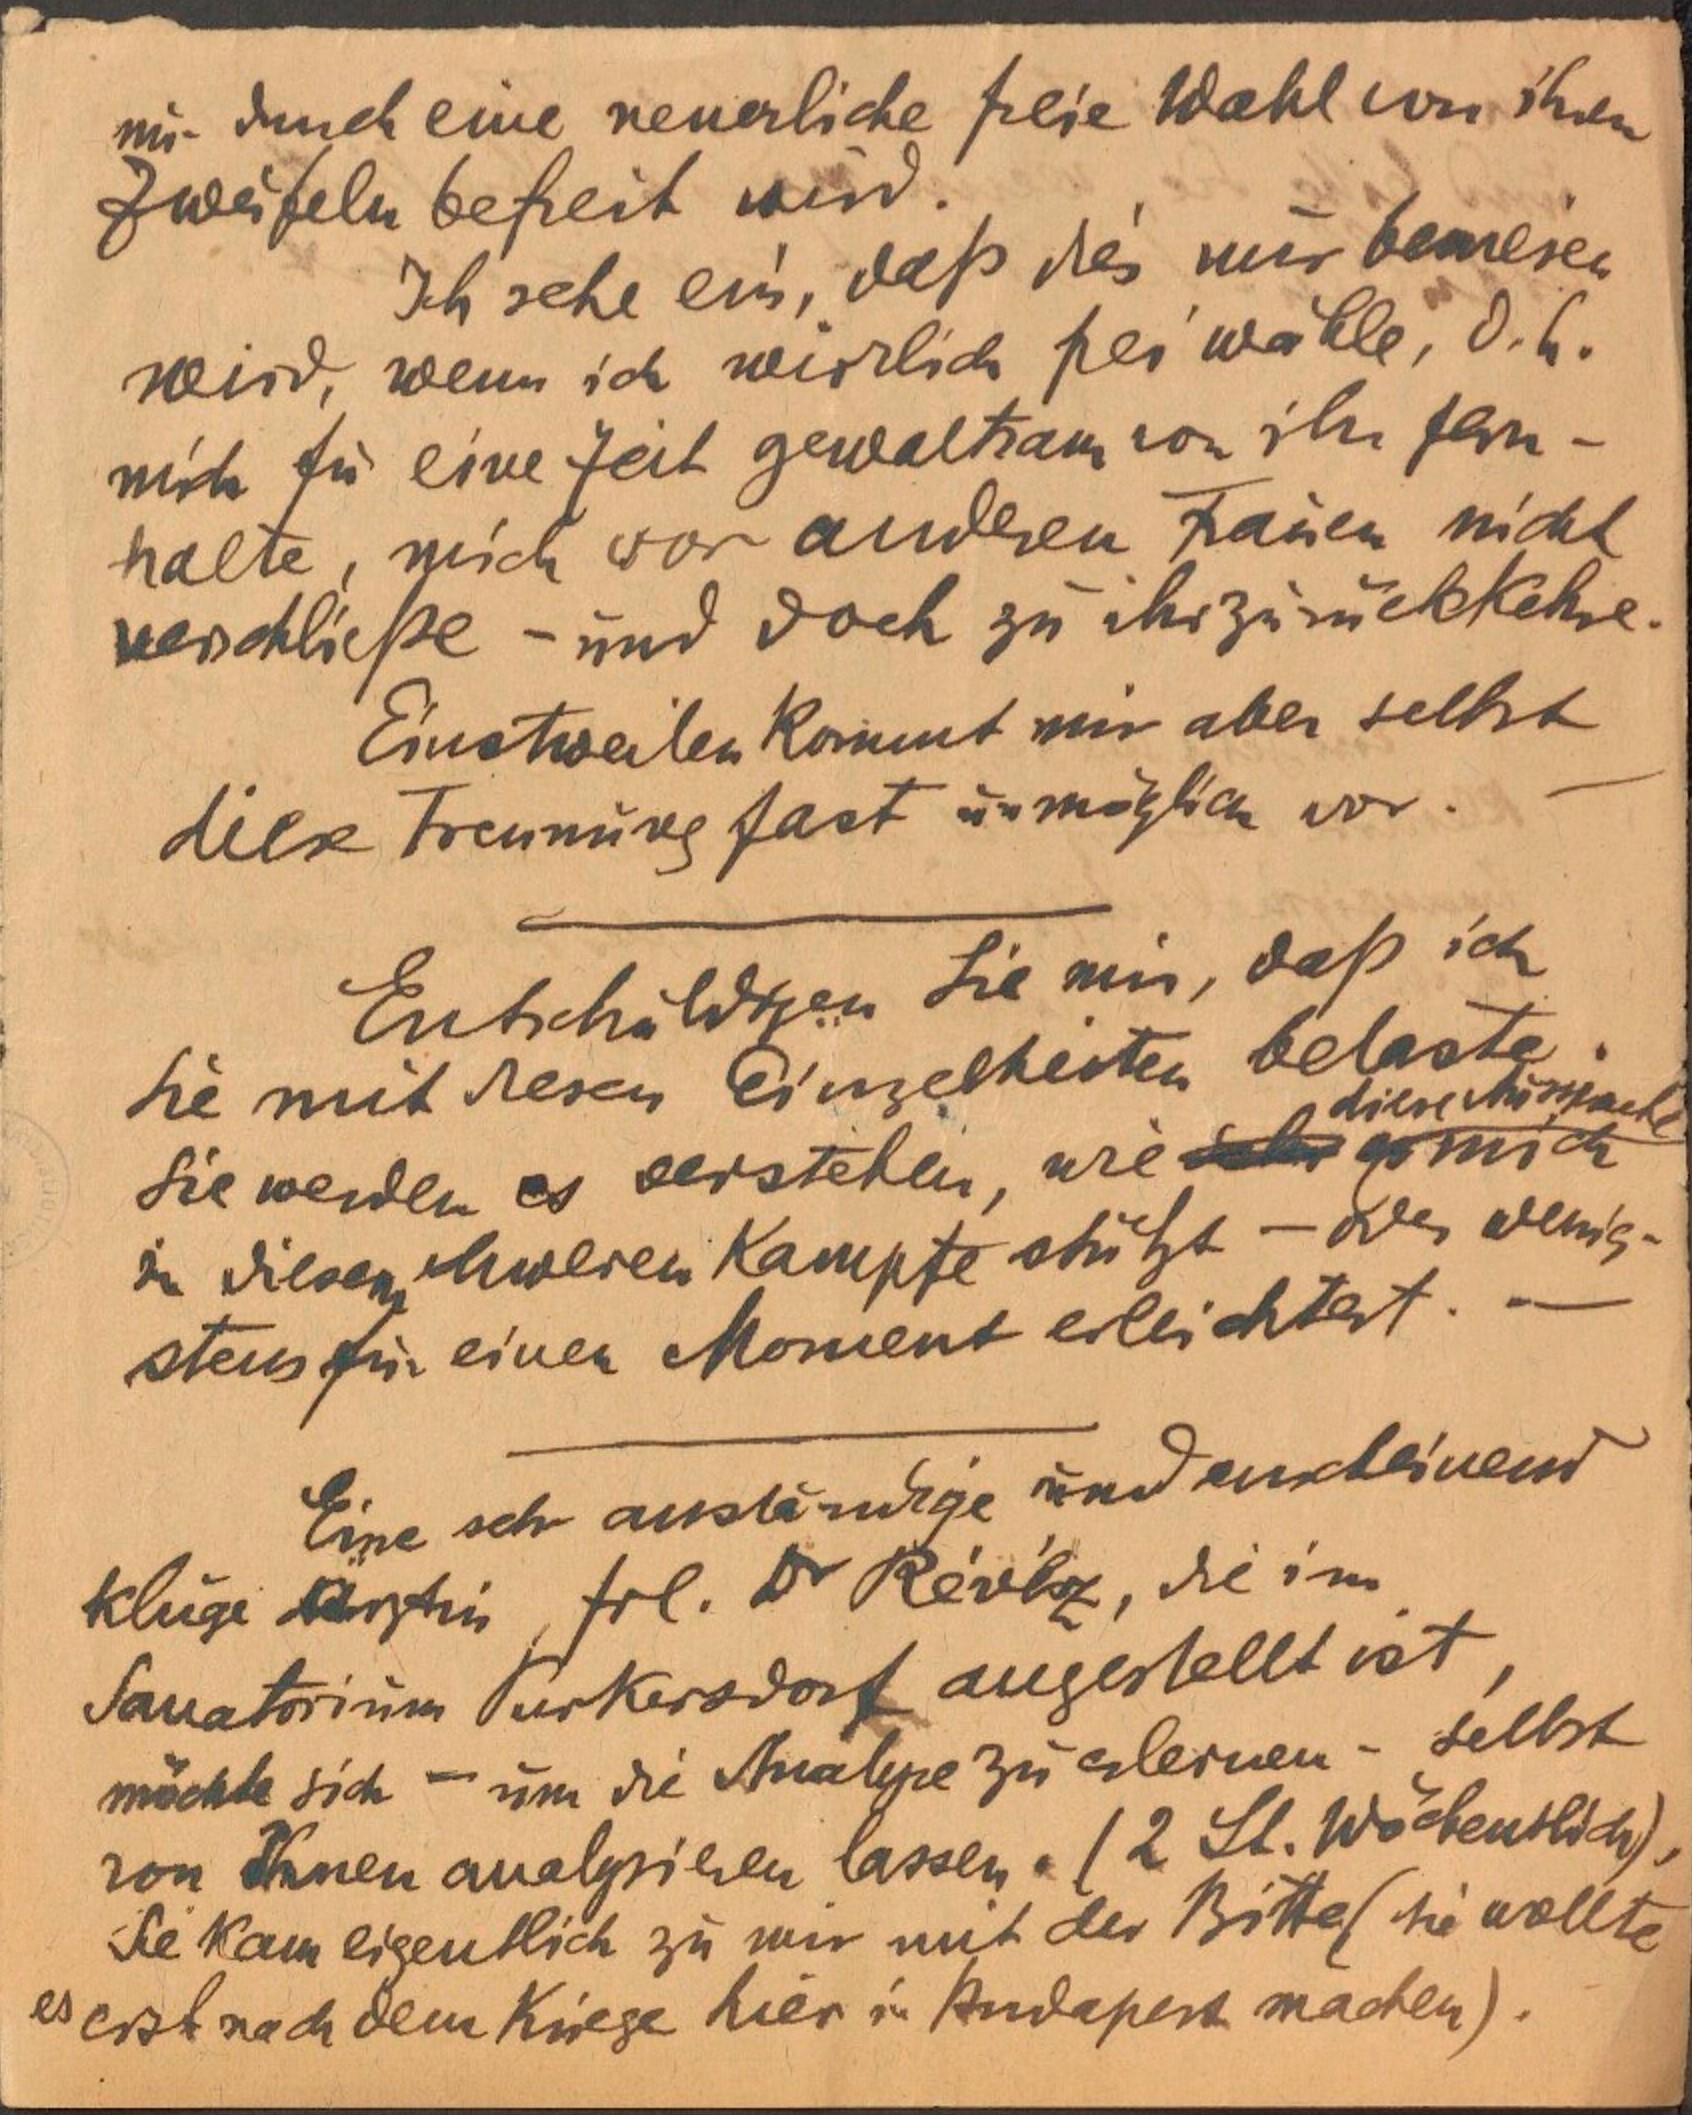 nur durch eine neuerliche freie Wahl von ihren
Zweifeln befreit wird.
Ich sehe ein, daß dies nur bewiesen
wird, wenn ich wirklich frei wähle, d.h.
mich für eine Zeit gewaltsam von ihr fern-
halte, mich vor anderen Frauen nicht
verschließe – und doch zu ihr zurückkehre.
Einstweilen kommt mir aber selbst
diese Trennung fast unmöglich vor. —
Entschuldigen Sie mir, daß ich
Sie mit diesen Einzelheiten belaste.
diese Aussprache
Sie werden es verstehen, wie es mich
in diesem schweren Kampfe stützt – oder wenig-
stens für einen Moment erleichtert. —
Eine sehr anständige und anscheinend
kluge Ärztin, Frl. Dr Révész, die im
Sanatorium Purkersdorf angestellt ist,
möchte sich – um die Analyse zu erlernen – selbst
von Ihnen analysieren lassen. (2 St. wöchentlich),
Sie kam eigentlich zu mir mit der Bitte (sie wollte
es erst nach dem Kriege hier in Budapest machen).